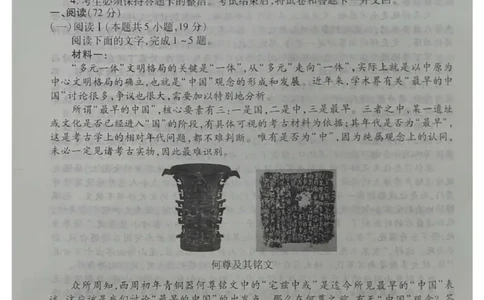 4.考生必须保持答题卡的整洁。考试结束后,将试卷和答题卡一并交回。
一、阅读(72分)
(一)阅读Ⅰ(本题共5小题,19分)
阅读下面的文字,完成1-5题。
材料一:
“多元一体”文明格局的关键是“一体”,从“多元”走向“一体”,实际上就是以中原为
中心文明格局的确立,也就是“中国”观念的形成和发展。近年来,学术界有关“最早的中
国”讨论很多,争议也很大,需要加以特别地分析。
所谓“最早的中国”,核心要素有三:一是国,二是中,三是最早。三者之中,某一遗址
或文化是否已经进入“国”的阶段,有具体可视的考古材料为依据;其年代是否为“最早”,
这是考古学上的相对年代问题,都不难判断。唯有是否为“中”,因为纯属观念上的认同,
未必一定见诸考古实物,因此最难识别。
何尊及其铭文
众所周知,西周初年青铜器何尊铭文中的“宅兹中或”是迄今所见最早的“中国”表